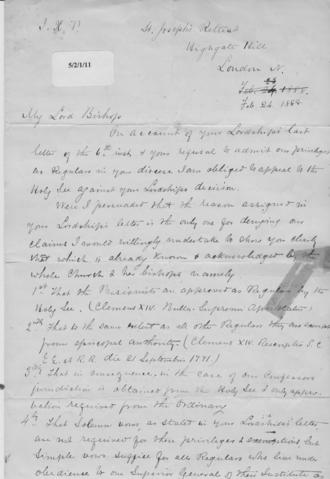 I. X. P.
St. Joseph's Retreat
Highgate Hill
London N.
5/2/1/11
Feb. 24. 188
My Lord Bishop
On account of your Lordship's last
letter of the 6th inst. & your refusal to admit our privileges
as Regulars in your diocese I am obliged to appeal to the
Holy See against your Lordship's decision.
Were I persuaded that the reason assigned in
your Lordship's letter is the only one for denying our
claims I would willingly undertake to show you clearly
that which is already known & acknowledged by the
whole Church & her bishops namely
1st That the Passionists are approved as Regulars by the
Holy See. (Clemens XIV. Bulla: Supremi Apostolatus)
2nd That to the same extent as all other Regulars they are exempt
from episcopal authority. (Clemens XIV. Rescriptis S.C.
EE. et RR. die 21 Septembris 1771.)
3rd That in consequence, in the case of our Confessors
jurisdiction is obtained from the Holy See & only appro-
bation required from the Ordinary
4th That Solemn vows, as stated in your Lordship's letter
are not required for these privileges & exemptions but
Simple vows suffice for all Regulars who live under
obedience to our Superior General of their Institute